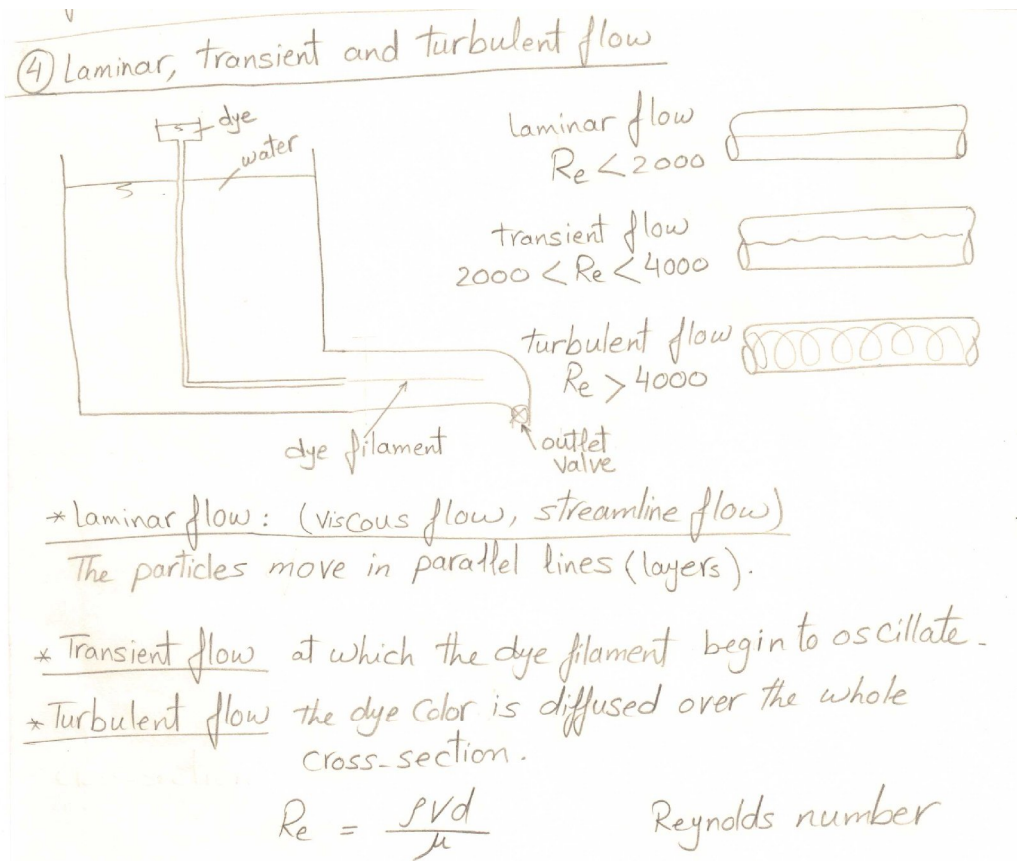 ④ Laminar, transient and turbulent flow
dye
water
Laminar flow
Re < 2000
transient flow
2000 < Re < 4000
turbulent flow
Re > 4000
dye filament
outlet
valve
* Laminar flow: (viscous flow, streamline flow)
The particles move in parallel lines (layers).
* Transient flow at which the dye filament begin to oscillate.
* Turbulent flow the dye color is diffused over the whole
cross-section.
Re = ρVd / μ Reynolds number